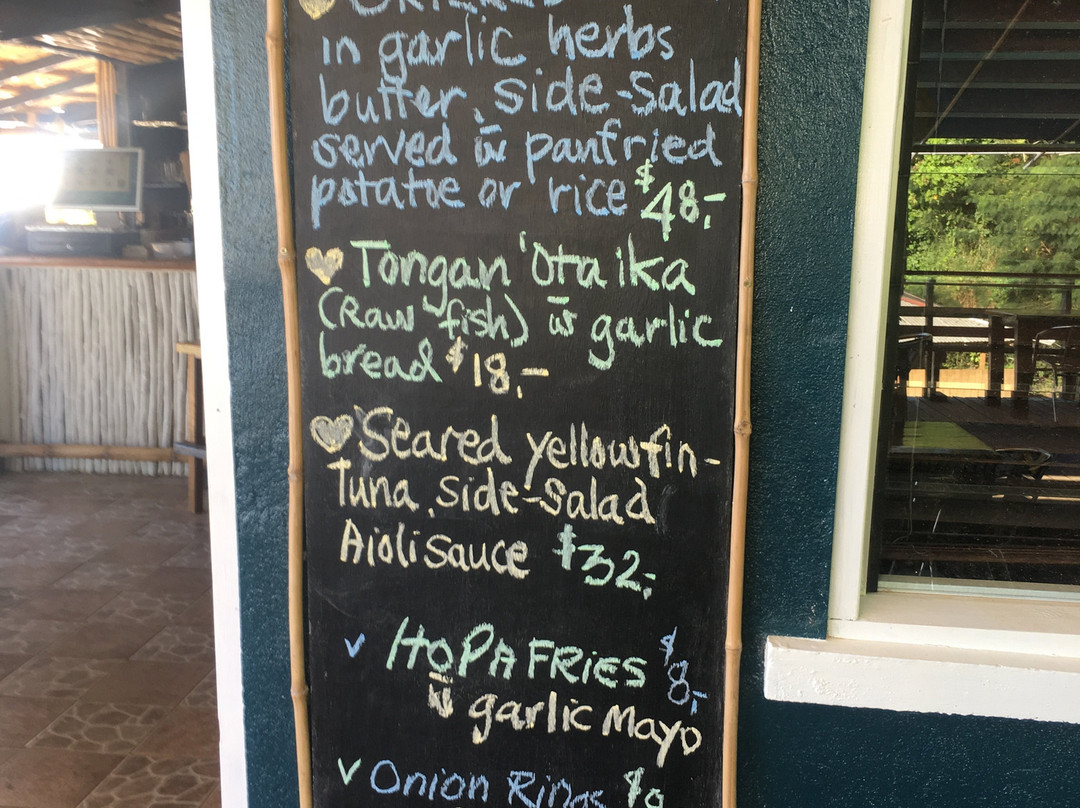 in garlic herbs
butter, side-Salad
served w̄ panfried
potatoe or rice $48,-
Tongan 'Ota ika
(Raw fish) w̄ garlic
bread $18,-
Seared yellowfin-
Tuna, side-Salad
Aioli sauce $32,-
✓ HOPA FRIES $8,-
w̄ garlic Mayo
✓ Onion Rings $9